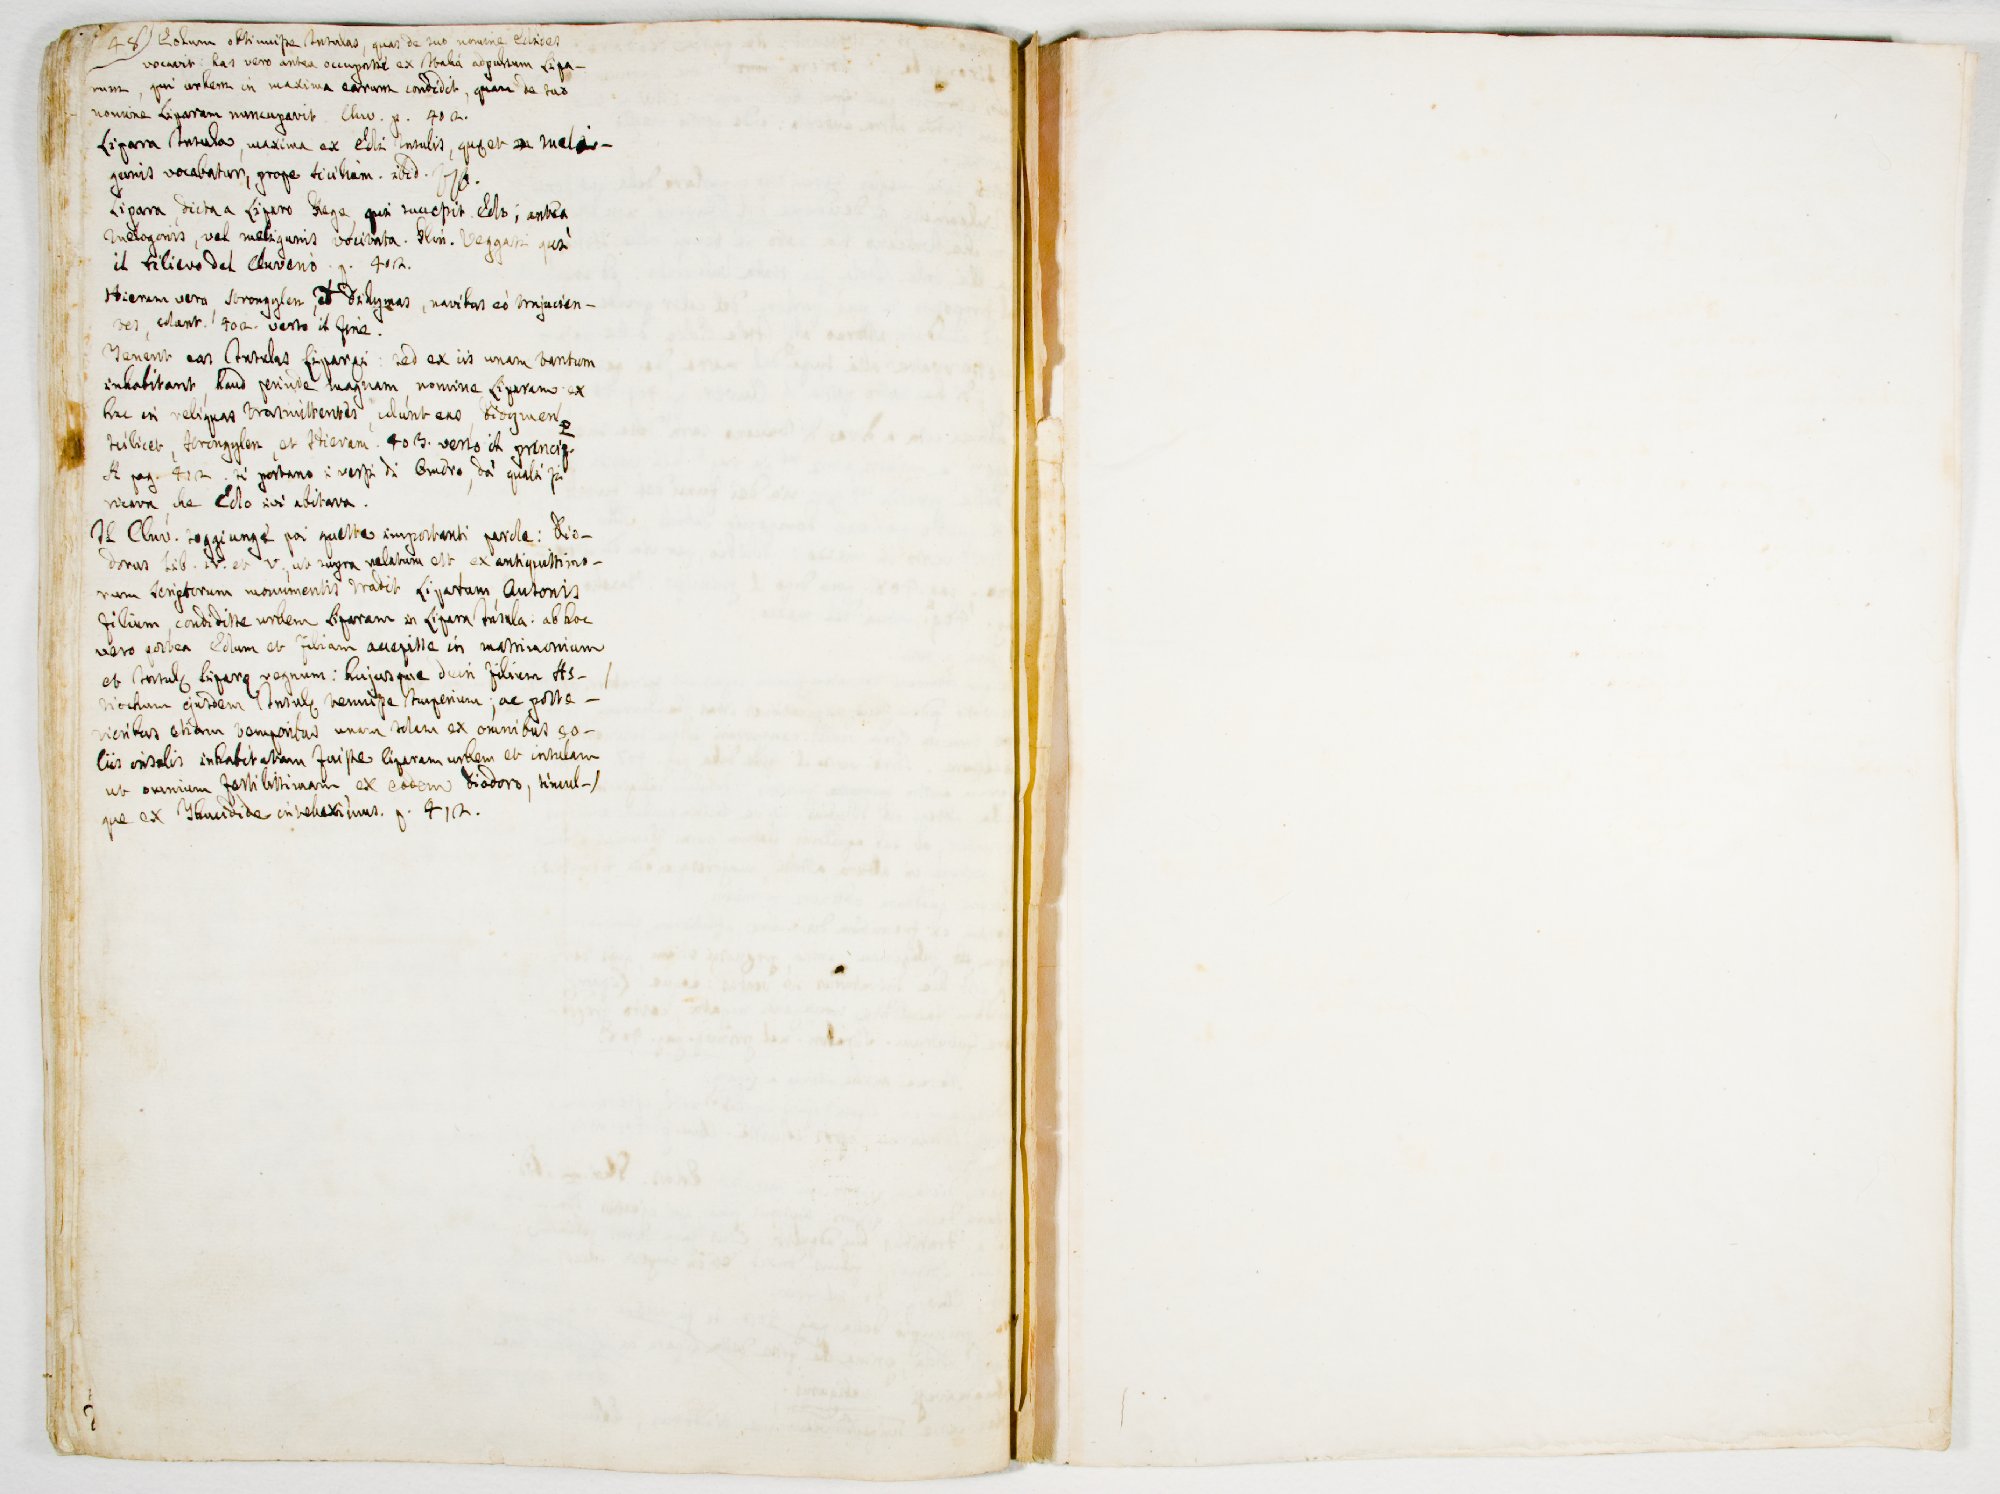 48) Eolum obtinuisse Insulas, quas de suo nomine Eolides
vocavit: has vero antea occupasse ex Italia adpulsum Lipa-
rum, qui urbem in maxima earum condidit, quam de suo
nomine Liparam nuncupavit. Cluv. p. 402.
Lipara Insula, maxima ex Eoli Insulis, quę et Meli-
gunis vocabatur, prope Siciliam. ibid.
Lipara, dicta a Liparo Rege, qui successit Eolo; antea
Melogonis, vel Meligunis vocitata. Plin. Veggasi quì
il rilievo del Cluverio. p. 402.
Hieram vero Strongylen, et Didymas, navibus eò trajicien-
tes, colunt. 402. verso il fine.
Tenent eas Insulas Liparęi: sed ex iis unam tantum
inhabitant, haud perinde magnam, nomine Liparam ex
hac in reliquas trasmittentes, colunt eas, Didymen
scilicet, Strongylen, et Hieram. 403. verso il princip.
A pag. 412. si portano i versi di Omero, da' quali si
ricava, che Eolo ivi abitava.
Il Cluv. soggiunge poi queste importanti parole: Dio-
dorus Lib. IV. et V., ut supra relatum est, ex antiquissimo-
rum Scriptorum monumentis tradit Liparum, Ausonis
filium, condidisse urbem Liparam in Lipara Insula: ab hoc
vero postea Eolum et filiam accepisse in matrimonium
et Insulę Liparę regnum: hujusque dein filium As-
tiochum ejusdem Insulę tenuisse Imperium; ac poste-
rioribus etiam temporibus unam solam ex omnibus Eo-
liis insulis inhabitatam fuisse Liparam urbem et insulam
ut omnium fertilissimam, ex eodem Diodoro, simul-
que ex Thucidide intelleximus. p. 412.